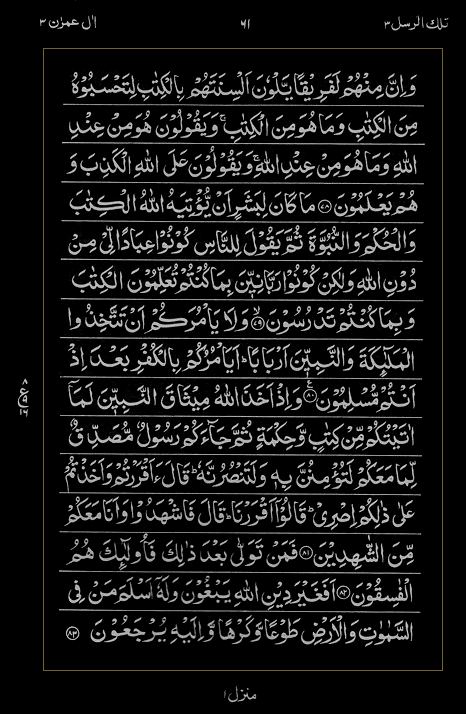 تلك الرسل ٣ ٦١ اٰل عمرٰن ٣
وَاِنَّ مِنۡهُمۡ لَفَرِيۡقًا يَّلۡوٗنَ اَلۡسِنَتَهُمۡ بِالۡكِتٰبِ لِتَحۡسَبُوۡهُ
مِنَ الۡكِتٰبِ وَمَا هُوَ مِنَ الۡكِتٰبِ‌ۚ وَيَقُوۡلُوۡنَ هُوَ مِنۡ عِنۡدِ
اللّٰهِ وَمَا هُوَ مِنۡ عِنۡدِ اللّٰهِ‌ۚ وَيَقُوۡلُوۡنَ عَلَى اللّٰهِ الۡكَذِبَ وَ
هُمۡ يَعۡلَمُوۡنَ ﴿۷۸﴾ مَا كَانَ لِبَشَرٍ اَنۡ يُّؤۡتِيَهُ اللّٰهُ الۡكِتٰبَ
وَالۡحُكۡمَ وَالنُّبُوَّةَ ثُمَّ يَقُوۡلَ لِلنَّاسِ كُوۡنُوۡا عِبَادًا لِّىۡ مِنۡ
دُوۡنِ اللّٰهِ وَلٰكِنۡ كُوۡنُوۡا رَبَّانِيّٖنَ بِمَا كُنۡتُمۡ تُعَلِّمُوۡنَ الۡكِتٰبَ
وَبِمَا كُنۡتُمۡ تَدۡرُسُوۡنَ ۙ‏﴿۷۹﴾ وَلَا يَاۡمُرَكُمۡ اَنۡ تَتَّخِذُوا
الۡمَلٰٓٮِٕكَةَ وَالنَّبِيّٖنَ اَرۡبَابًا‌ؕ اَيَاۡمُرُكُمۡ بِالۡكُفۡرِ بَعۡدَ اِذۡ
اَنۡتُمۡ مُّسۡلِمُوۡنَ ﴿۸۰﴾ وَاِذۡ اَخَذَ اللّٰهُ مِيۡثَاقَ النَّبِيّٖنَ لَمَاۤ
اٰتَيۡتُكُمۡ مِّنۡ كِتٰبٍ وَّحِكۡمَةٍ ثُمَّ جَآءَكُمۡ رَسُوۡلٌ مُّصَدِّقٌ
لِّمَا مَعَكُمۡ لَتُؤۡمِنُنَّ بِهٖ وَلَتَنۡصُرُنَّهٗ‌ؕ قَالَ ءَاَقۡرَرۡتُمۡ وَاَخَذۡتُمۡ
عَلٰى ذٰلِكُمۡ اِصۡرِىۡ‌ؕ قَالُوۡۤا اَقۡرَرۡنَا‌ؕ قَالَ فَاشۡهَدُوۡا وَاَنَا مَعَكُمۡ
مِّنَ الشّٰهِدِيۡنَ ﴿۸۱﴾ فَمَنۡ تَوَلّٰى بَعۡدَ ذٰلِكَ فَاُولٰٓٮِٕكَ هُمُ
الۡفٰسِقُوۡنَ ﴿۸۲﴾ اَفَغَيۡرَ دِيۡنِ اللّٰهِ يَبۡغُوۡنَ وَلَهٗۤ اَسۡلَمَ مَنۡ فِى
السَّمٰوٰتِ وَالۡاَرۡضِ طَوۡعًا وَّكَرۡهًا وَّاِلَيۡهِ يُرۡجَعُوۡنَ ﴿۸۳﴾
۸
ع
۱۶
منزل ١